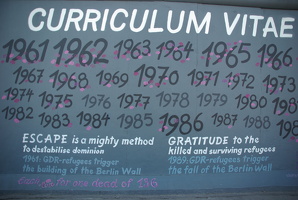 CURRICULUM VITAE
1961 1962 1963 1964 1965 1966
1967 1968 1969 1970 1971 1972 1973
1974 1975 1976 1977 1978 1979 1980 1981
1982 1983 1984 1985 1986 1987 1988
ESCAPE is a mighty method
to destabilise dominion
1961: GDR-refugees trigger
the building of the Berlin Wall
GRATITUDE to the
killed and surviving refugees
1989: GDR-refugees trigger
the fall of the Berlin Wall
dead of 136